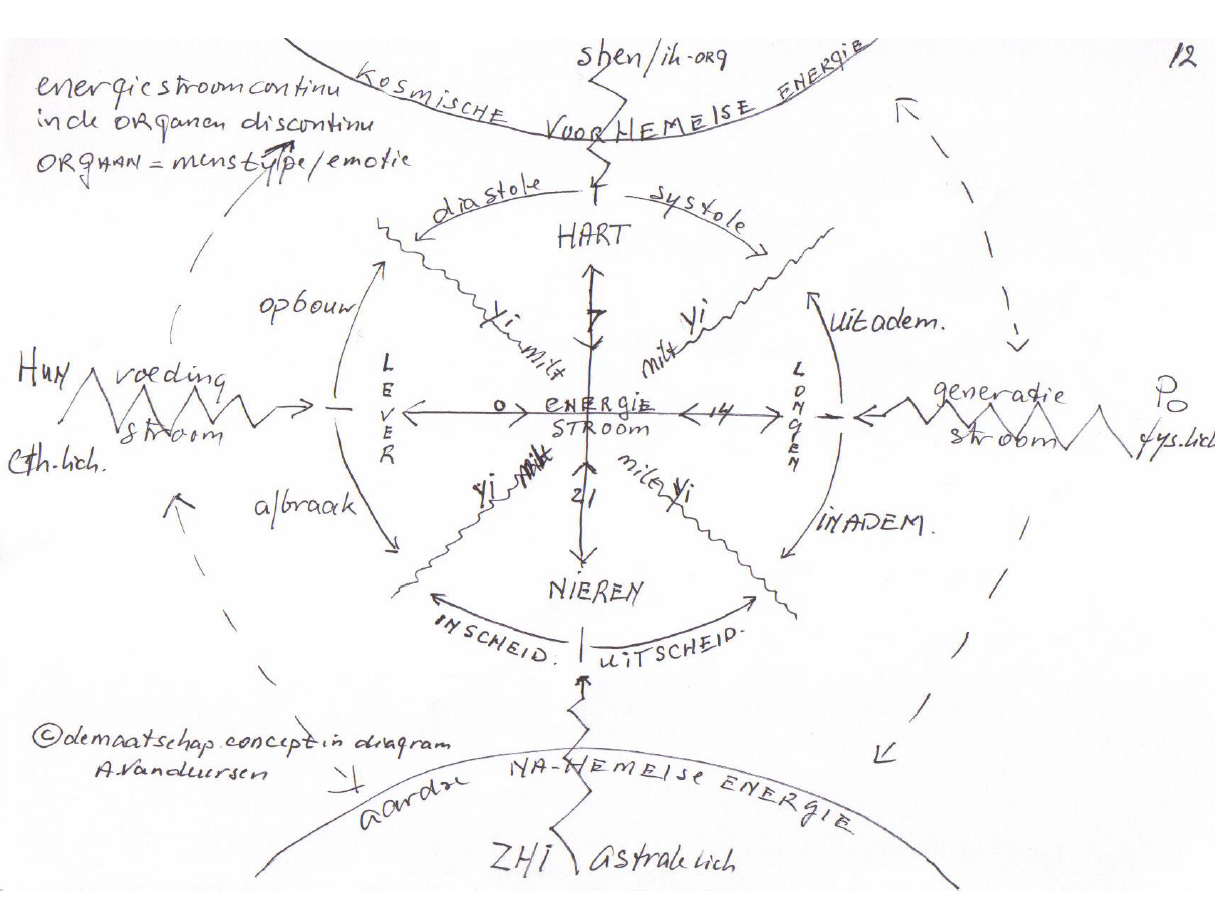 12
shen/ih-ORG
KOSMISCHE VOORHEMELSE ENERGIE
energiestroom continu
in de ORGANEN discontinu
ORGAAN = menstype/emotie
diastole systole
HART
opbouw
yi milt
7
yi milt
uitadem.
HUN
voeding
stroom
eth.lich.
LEVER
0
ENERGIE
STROOM
14
LONGEN
generatie
stroom
Po
fys.lich
afbraak
yi milt
21
milt yi
INADEM.
NIEREN
INSCHEID. UITSCHEID.
© demaatschap.concept in diagram
A.Vandeursen
aardse NA-HEMELSE ENERGIE
ZHi astrale lich